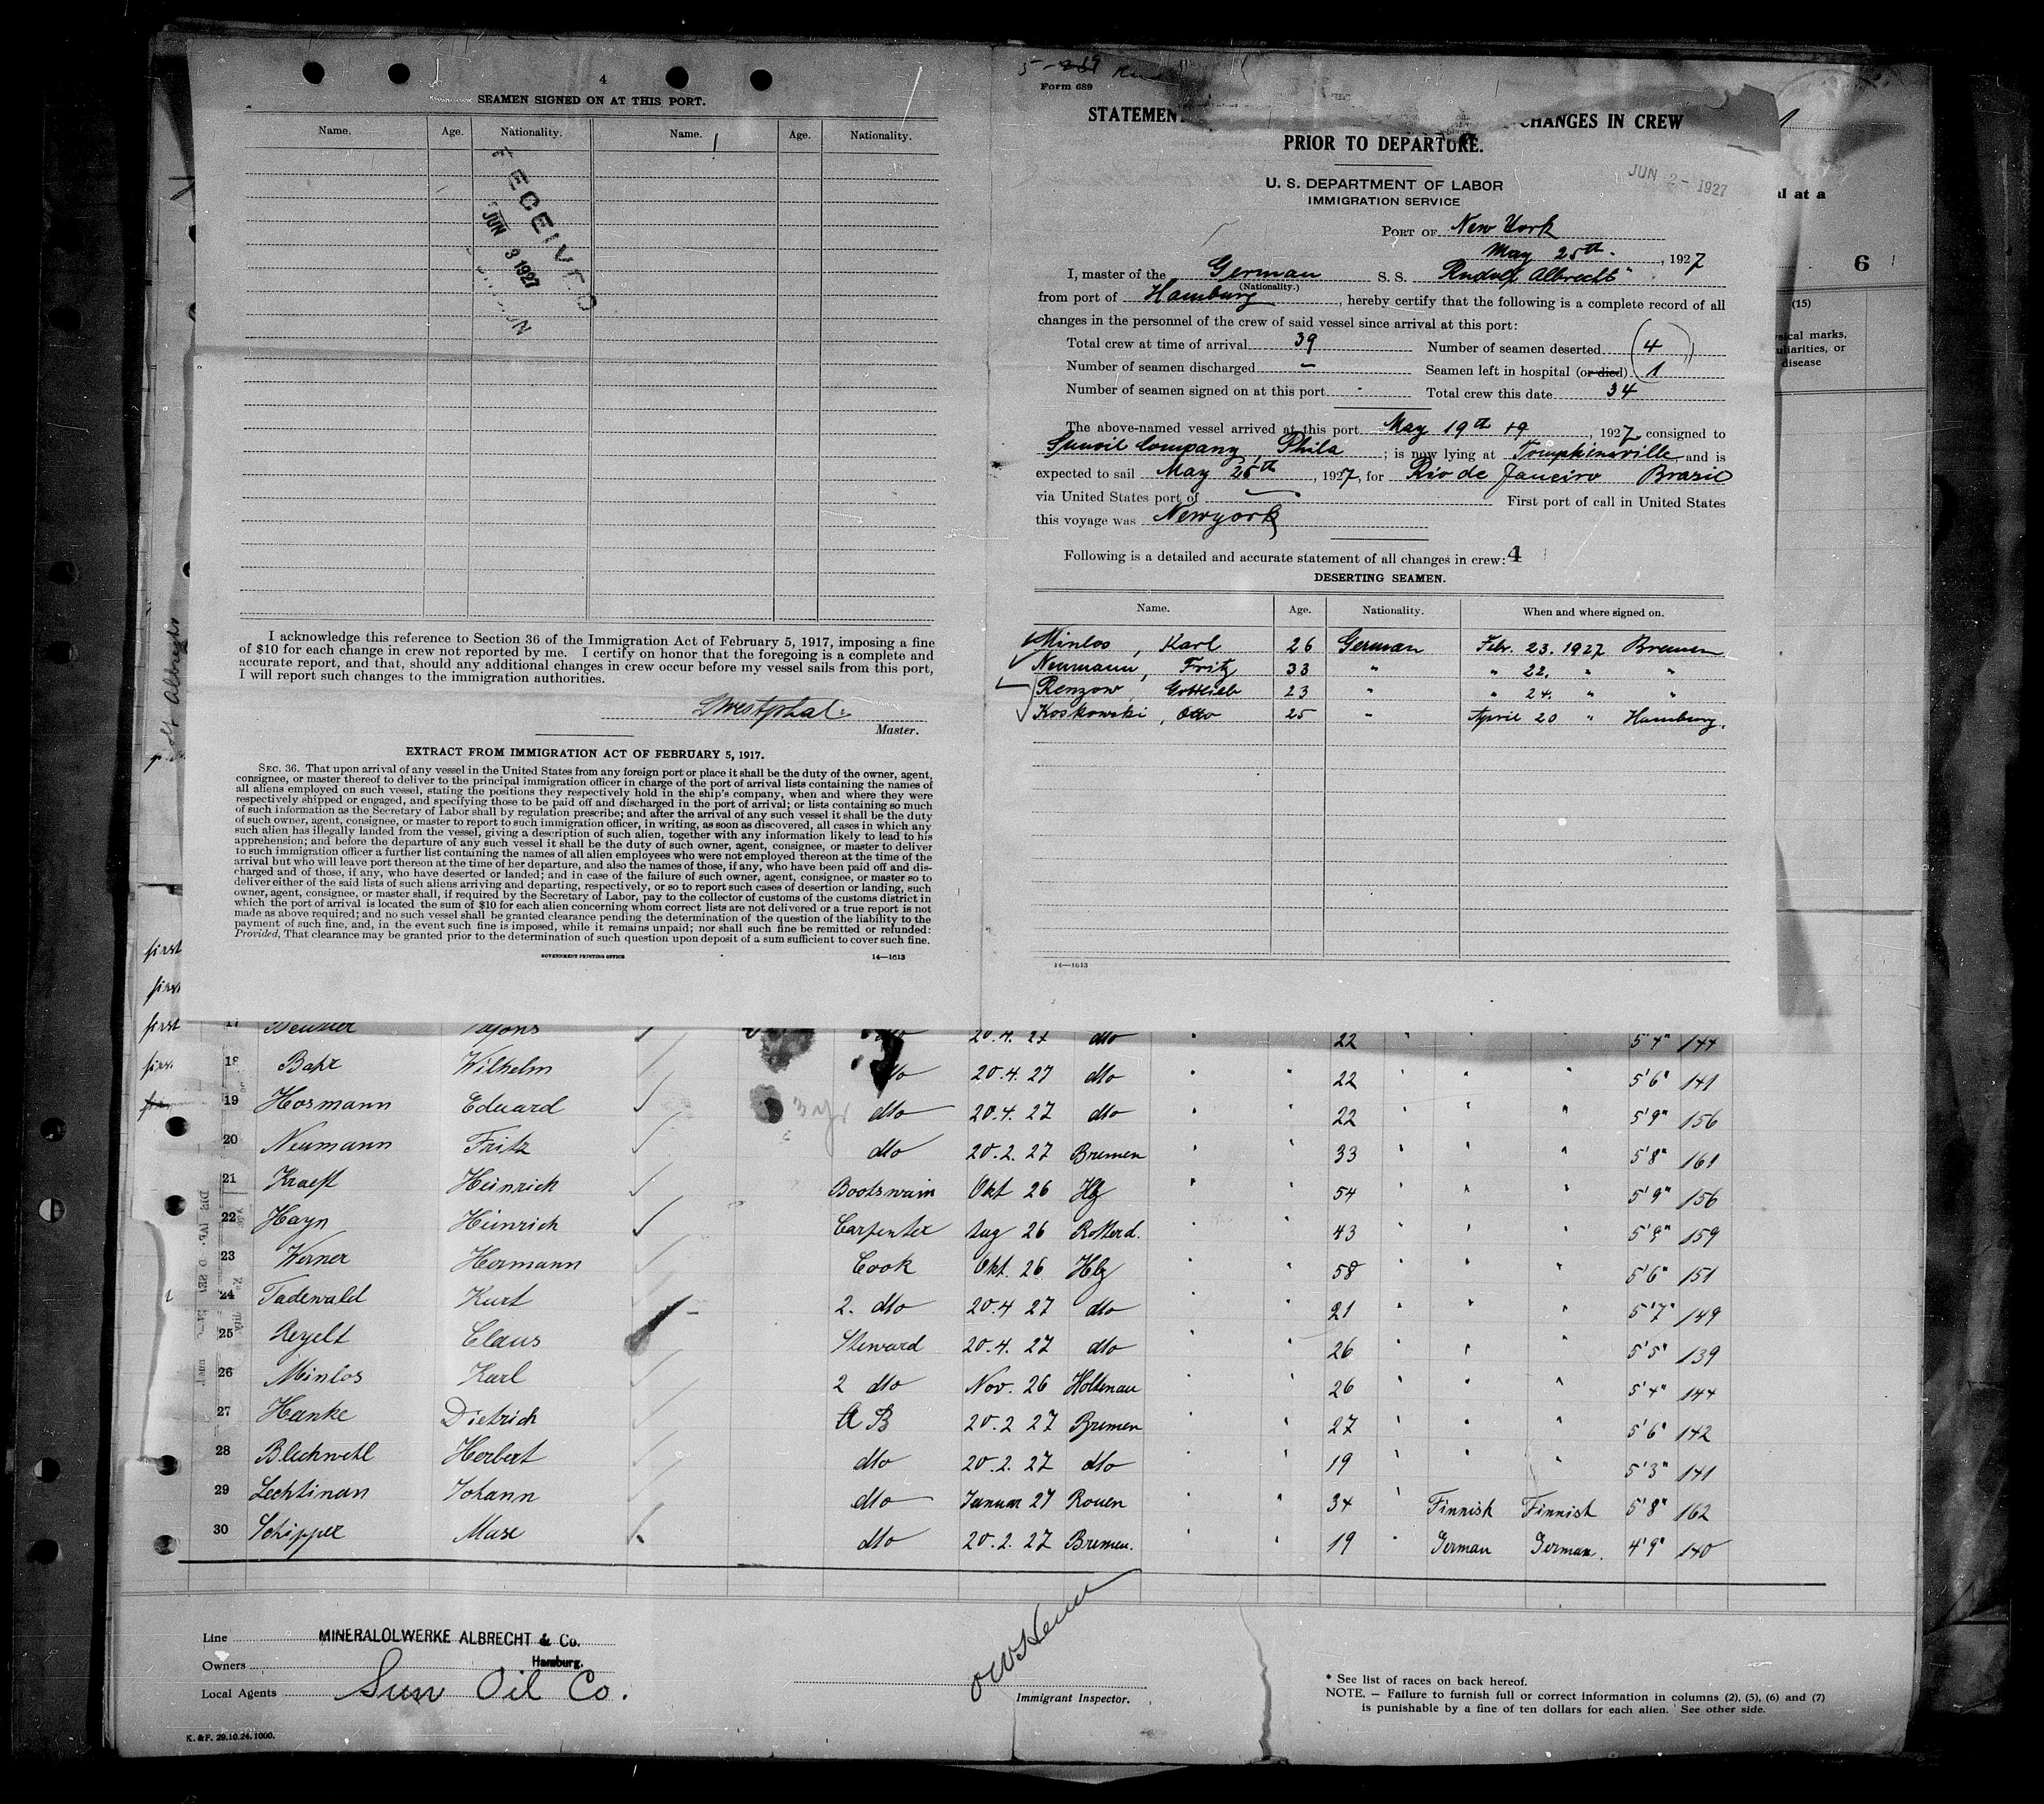 4
SEAMEN SIGNED ON AT THIS PORT.
Name. Age. Nationality. Name. Age. Nationality.
RECEIVED
JUN 3 1927
I acknowledge this reference to Section 36 of the Immigration Act of February 5, 1917, imposing a fine
of $10 for each change in crew not reported by me. I certify on honor that the foregoing is a complete and
accurate report, and that, should any additional changes in crew occur before my vessel sails from this port,
I will report such changes to the immigration authorities.
Westphal.
Master.
EXTRACT FROM IMMIGRATION ACT OF FEBRUARY 5, 1917.
SEC. 36. That upon arrival of any vessel in the United States from any foreign port or place it shall be the duty of the owner, agent,
consignee, or master thereof to deliver to the principal immigration officer in charge of the port of arrival lists containing the names of
all aliens employed on such vessel, stating the positions they respectively hold in the ship's company, when and where they were
respectively shipped or engaged, and specifying those to be paid off and discharged in the port of arrival; or lists containing so much
of such information as the Secretary of Labor shall by regulation prescribe; and after the arrival of any such vessel it shall be the duty
of such owner, agent, consignee, or master to report to such immigration officer, in writing, as soon as discovered, all cases in which any
such alien has illegally landed from the vessel, giving a description of such alien, together with any information likely to lead to his
apprehension; and before the departure of any such vessel it shall be the duty of such owner, agent, consignee, or master to deliver
to such immigration officer a further list containing the names of all alien employees who were not employed thereon at the time of the
arrival but who will leave port thereon at the time of her departure, and also the names of those, if any, who have been paid off and dis-
charged and of those, if any, who have deserted or landed; and in case of the failure of such owner, agent, consignee, or master so to
deliver either of the said lists of such aliens arriving and departing, respectively, or so to report such cases of desertion or landing, such
owner, agent, consignee, or master shall, if required by the Secretary of Labor, pay to the collector of customs of the customs district in
which the port of arrival is located the sum of $10 for each alien concerning whom correct lists are not delivered or a true report is not
made as above required; and no such vessel shall be granted clearance pending the determination of the question of the liability to the
payment of such fine, and, in the event such fine is imposed, while it remains unpaid; nor shall such fine be remitted or refunded:
Provided, That clearance may be granted prior to the determination of such question upon deposit of a sum sufficient to cover such fine.
GOVERNMENT PRINTING OFFICE 14—1613
Form 689
STATEMENT CHANGES IN CREW
PRIOR TO DEPARTURE.
JUN 2 - 1927
U. S. DEPARTMENT OF LABOR
IMMIGRATION SERVICE
PORT OF New York
May 25th. , 1927
I, master of the German S. S. Rudolf Albrecht"
(Nationality.)
from port of Hamburg , hereby certify that the following is a complete record of all
changes in the personnel of the crew of said vessel since arrival at this port:
Total crew at time of arrival 39 Number of seamen deserted 4
Number of seamen discharged — Seamen left in hospital (or died) 1
Number of seamen signed on at this port - Total crew this date 34
The above-named vessel arrived at this port May 19th 19 , 1927 consigned to
Sunoil Company, Phila ; is now lying at Tompkinsville and is
expected to sail May 25th , 1927, for Rio de Janeiro Brazil
via United States port of — First port of call in United States
this voyage was Newyork
Following is a detailed and accurate statement of all changes in crew: 4
DESERTING SEAMEN.
Name. Age. Nationality. When and where signed on.
Minlos, Karl 26 German Febr. 23. 1927 Bremen
Neumann, Fritz 33 " " 22. " "
Renzow, Gottlieb 23 " " 24. " "
Koskowski, Otto 25 " April 20 " Hamburg.
14—1613
al at a
6
(15)
ysical marks,
uliarities, or
disease
first
first
first
first
17 22 5'4" 144
18 Bahr Wilhelm dto 20.4.27 dto " " 22 " " " 5'6" 141
19 Hosmann Eduard dto 20.4.27 dto " " 22 " " " 5'9" 156
20 Neumann Fritz dto 20.2.27 Bremen " " 33 " " " 5'8" 161
21 Kraeft Heinrich Bootswain Okt 26 Hbg " " 54 " " " 5'9" 156
22 Hayn Heinrich Carpenter Aug 26 Rotterd. " " 43 " " " 5'9" 159
23 Werner Hermann Cook Okt. 26 Hbg " " 58 " " " 5'6" 151
24 Tadewald Kurt 2. dto 20.4 27 dto " " 21 " " " 5'7" 149
25 Reyelt Claus Steward 20.4.27 dto " " 26 " " " 5'5" 139
26 Minlos Karl 2 dto Nov. 26 Holtenau " " 26 " " " 5'4" 144
27 Hanke Dietrich A B 20.2 27 Bremen " " 27 " " " 5'6" 142
28 Blechwehl Herbert dto 20.2.27 dto " " 19 " " " 5'3" 141
29 Lechtinan Johann dto Januar 27 Rouen " " 34 " Finnish Finnish 5'8" 162
30 Schipper Max dto 20.2.27 Bremen. " 19 " German German. 4'9" 140
Line MINERALOLWERKE ALBRECHT & Co.
Owners Hamburg.
Local Agents Sun Oil Co.
Immigrant Inspector.
* See list of races on back hereof.
NOTE. — Failure to furnish full or correct information in columns (2), (5), (6) and (7)
is punishable by a fine of ten dollars for each alien. See other side.
K. & F. 29.10.24.1000.